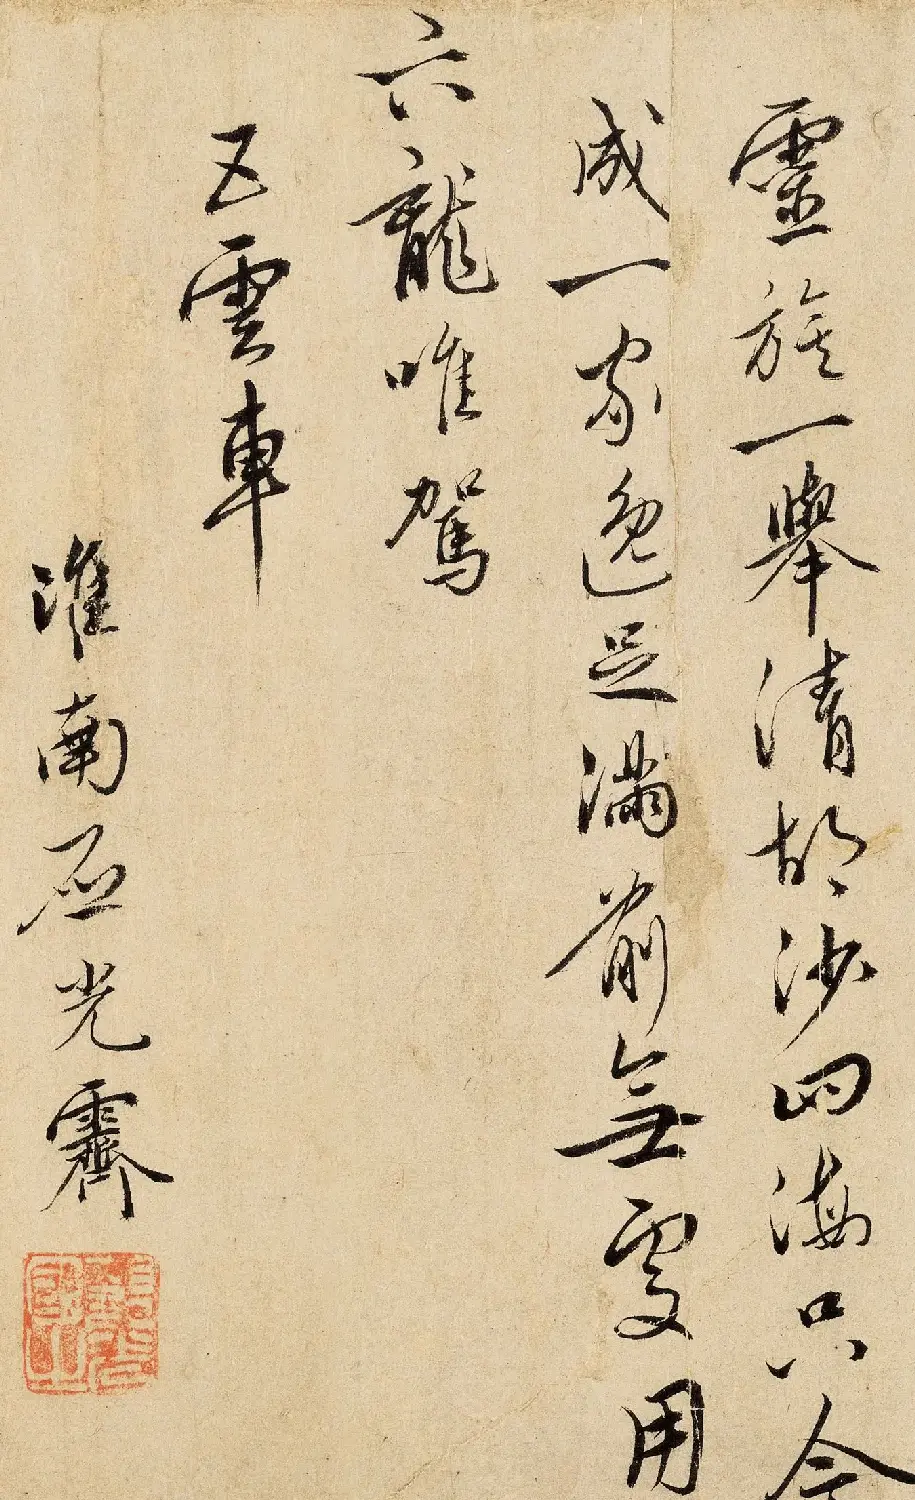 靈旗一舉清胡沙四海只今
成一家逸足滿前無處用
六龍唯駕
五雲車
淮南石光霽